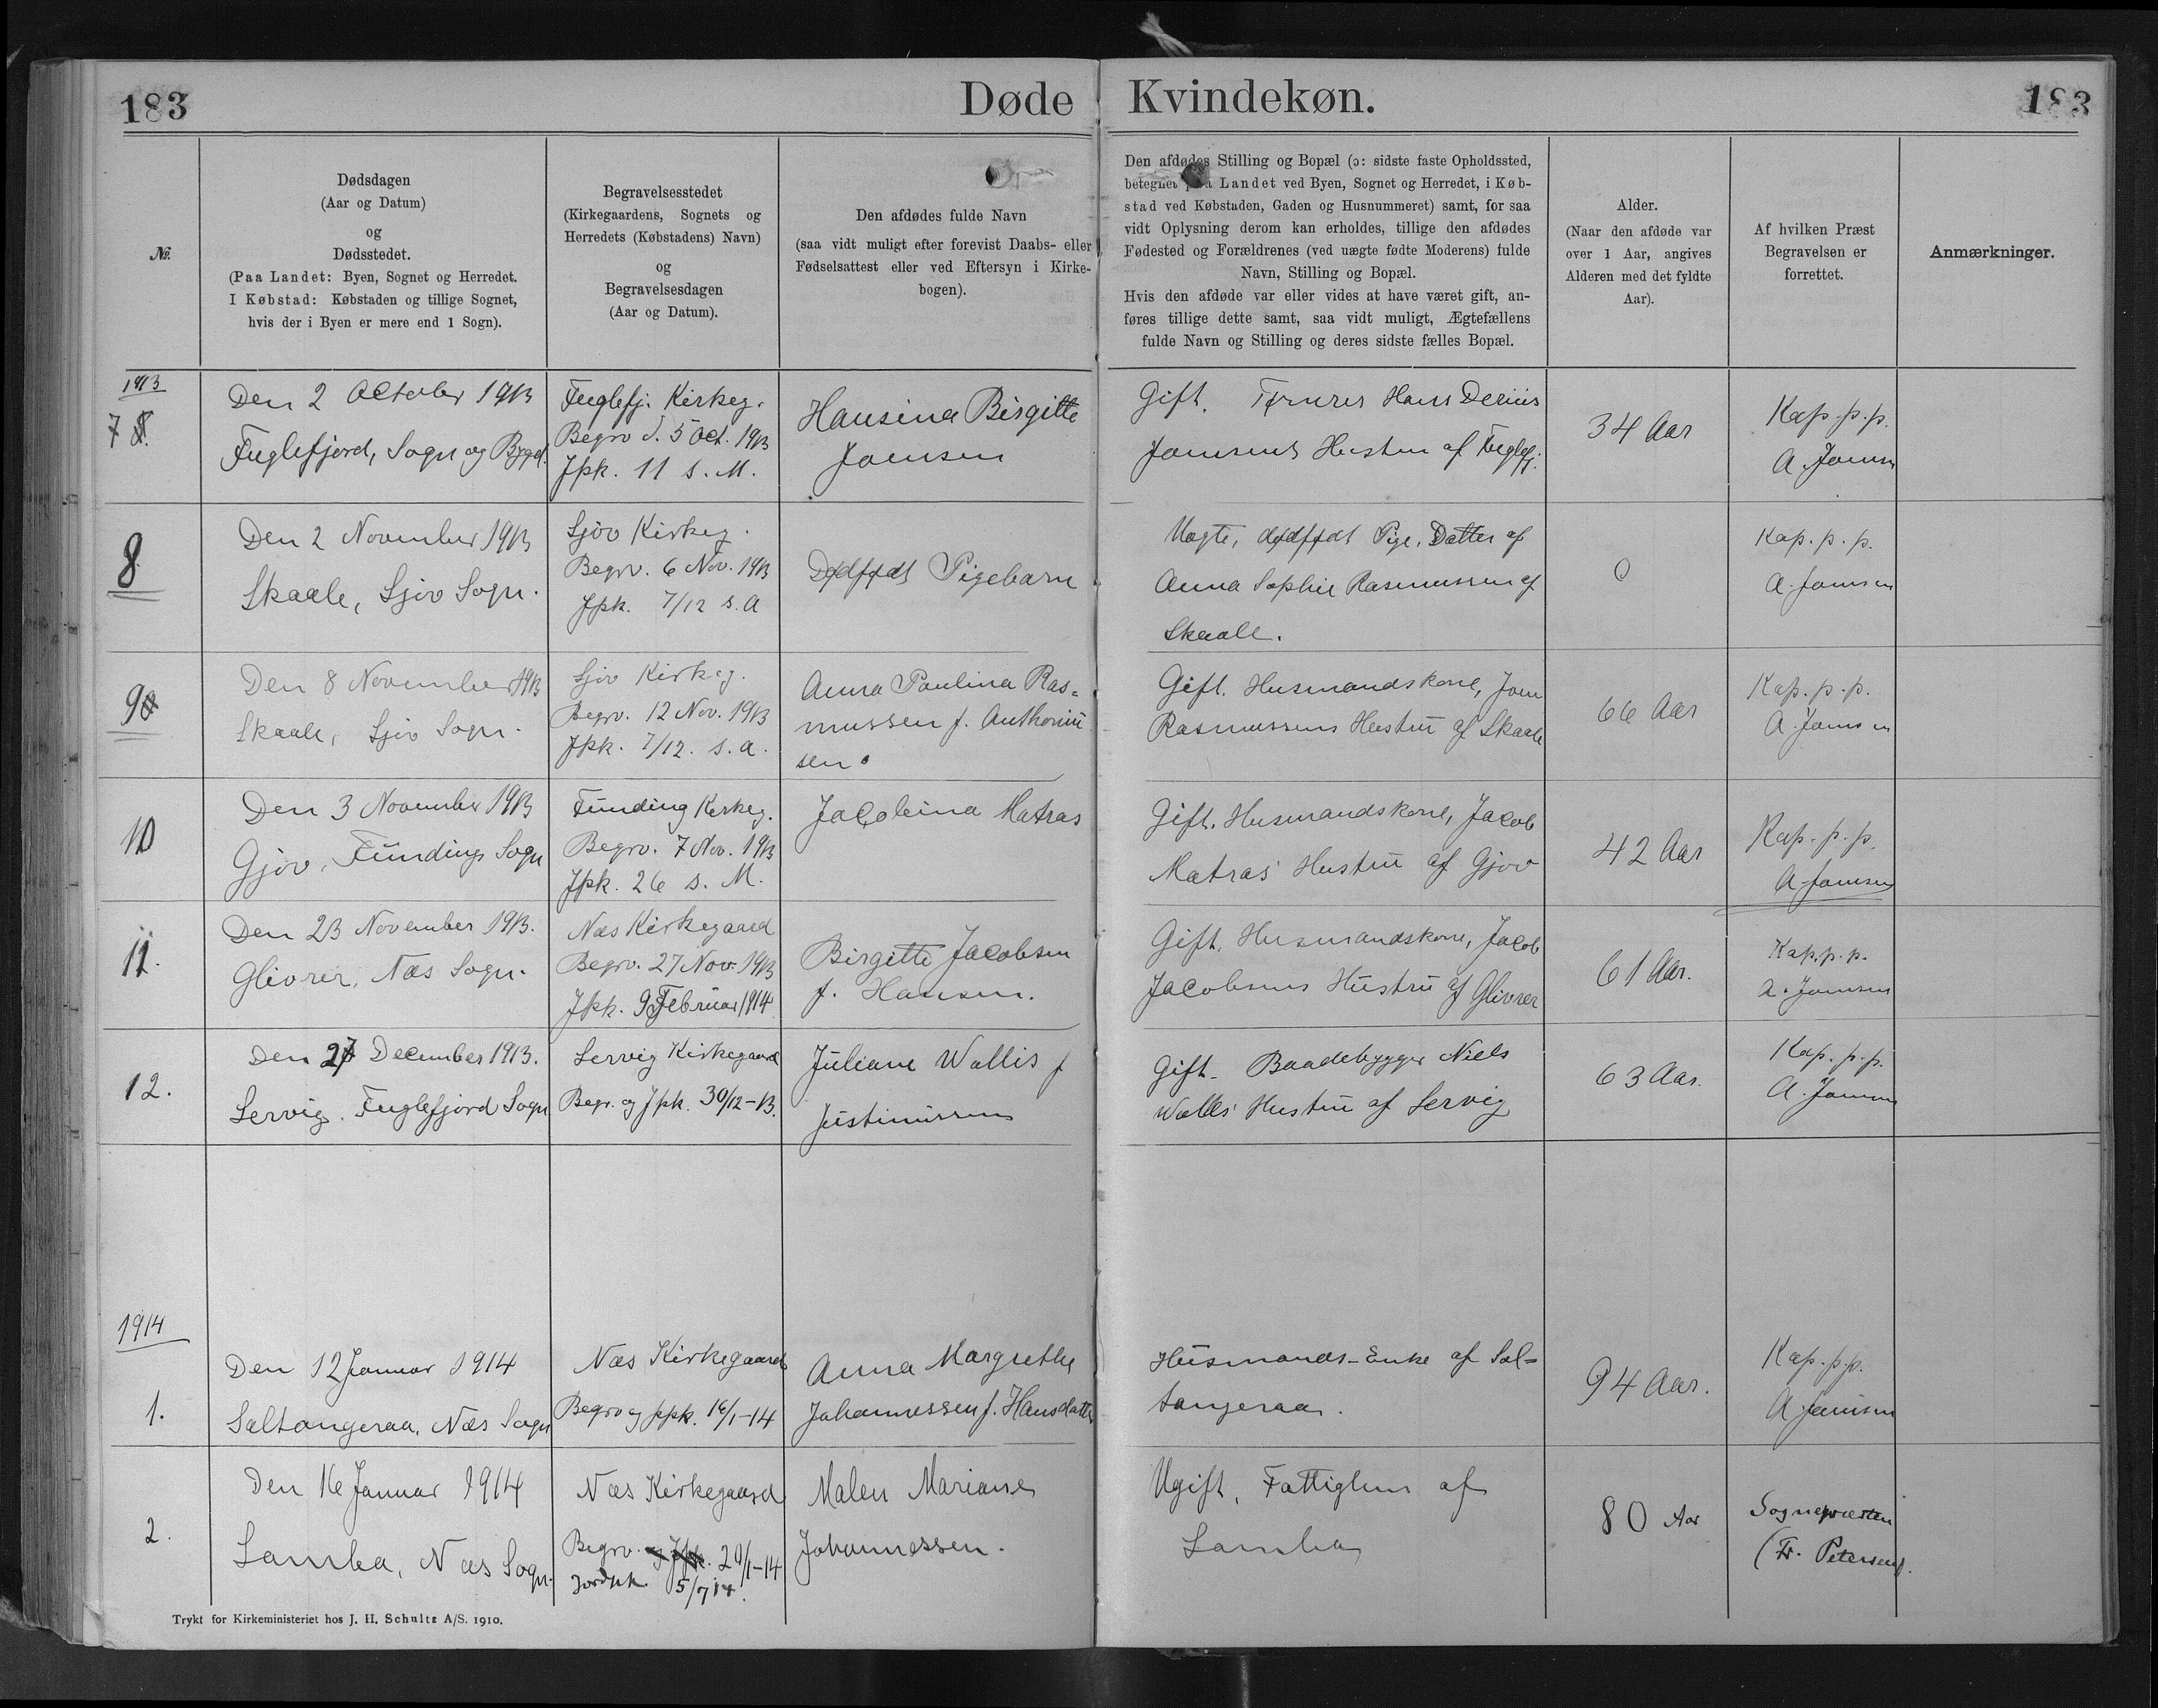 183
Døde
Kvindekøn.
183
No.
Dødsdagen
(Aar og Datum)
og
Dødsstedet.
(Paa Landet: Byen, Sognet og Herredet.
I Købstad: Købstaden og tillige Sognet,
hvis der i Byen er mere end 1 Sogn).
Begravelsesstedet
(Kirkegaardens, Sognets og
Herredets (Købstadens) Navn)
og
Begravelsesdagen
(Aar og Datum).
Den afdødes fulde Navn
(saa vidt muligt efter forevist Daabs- eller
Fødselsattest eller ved Eftersyn i Kirke-
bogen).
Den afdødes Stilling og Bopæl (ɔ: sidste faste Opholdssted,
betegnet paa Landet ved Byen, Sognet og Herredet, i Køb-
stad ved Købstaden, Gaden og Husnummeret) samt, for saa
vidt Oplysning derom kan erholdes, tillige den afdødes
Fødested og Forældrenes (ved uægte fødte Moderens) fulde
Navn, Stilling og Bopæl.
Hvis den afdøde var eller vides at have været gift, an-
føres tillige dette samt, saa vidt muligt, Ægtefællens
fulde Navn og Stilling og deres sidste fælles Bopæl.
Alder.
(Naar den afdøde var
over 1 Aar, angives
Alderen med det fyldte
Aar).
Af hvilken Præst
Begravelsen er
forrettet.
Anmærkninger.
1913
7
Den 2 October 1913
Fuglefjord, Sogn og Bygd.
Fuglefj. Kirkeg.
Begrv d. 5 Oct. 1913
Jpk. 11 s. M.
Hansina Birgitte
Joensen
Gift. Tømrer Hans Debes
Joensens Hustru af Fuglefj.
34 Aar
Kap. p. p.
A. Joensen
8
Den 2 November 1913
Skaale, Gjov Sogn.
Gjov Kirkeg.
Begrv. 6 Nov. 1913
Jpk. 7/12 s. A
Dødfødt Pigebarn
Uægte, dødfødt Pige, Datter af
Anna Sophie Rasmussen af
Skaale.
0
Kap. p. p.
A. Joensen
9
Den 8 November 1913
Skaale, Gjov Sogn.
Gjov Kirkeg.
Begrv. 12 Nov. 1913
Jpk. 7/12. s. a.
Anna Paulina Ras=
mussen f. Anthonius
sen.
Gift. Husmandskone, Joen
Rasmussens Hustru af Skaale
66 Aar
Kap. p. p.
A. Joensen
10
Den 3 November 1913
Gjov, Fundings Sogn
Funding Kirkeg.
Begrv. 7 Nov. 1913
Jpk. 26 s. M.
Jacobina Matras
Gift. Husmandskone, Jacob
Matras' Hustru af Gjov
42 Aar
Kap. p. p.
A. Joensen
11.
Den 23 November 1913.
Glivrer, Næs Sogn.
Næs Kirkegaard
Begrv. 27 Nov. 1913
Jpk. 9 Februar 1914
Birgitte Jacobsen
f. Hansen.
Gift. Husmandskone, Jacob
Jacobsens Hustru af Glivrer
61 Aar.
Kap. p. p.
A. Joensen
12.
Den 27 December 1913.
Lervig. Fuglefjord Sogn
Lervig Kirkegaard
Begr. og Jpk. 30/12-13.
Juliane Wallis f
Justinussen
Gift. Baadebygger Niels
Wallis' Hustru af Lervig
63 Aar.
Kap. p. p.
A. Joensen
1914
1.
Den 12 Januar 1914
Saltangeraa, Næs Sogn
Næs Kirkegaard
Begrv og jpk. 16/1-14
Anna Margrethe
Johannessen f. Hansdatter
Husmands-Enke af Sal=
tangeraa.
94 Aar.
Kap. p. p.
A Joensen
2.
Den 16 Januar 1914
Lamba, Næs Sogn.
Næs Kirkegaard
Begrv. og Jpk. 20/1-14
Jordpk 5/7 14.
Malen Mariane
Johannessen.
Ugift, Fattiglem af
Lamba
80 Aar
Sognepræsten
(Fr. Petersen).
Trykt for Kirkeministeriet hos J. H. Schultz A/S. 1910.